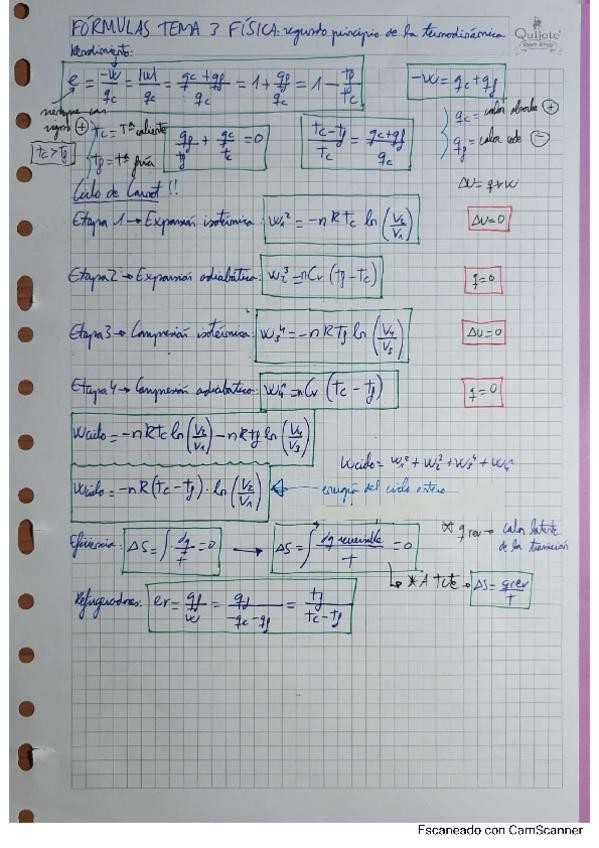 FÓRMULAS TEMA 3 FÍSICA: segundo principio de la termodinámica
Quijote
Rendimiento:
e = -w/qc = |w|/qc = qc+qf/qc = 1 + qf/qc = 1 - tf/tc
-w = qc + qf
siempre con signo +
tc > tf
tc = Tª caliente
tf = Tª fría
qf/tf + qc/tc = 0
tc-tf/tc = qc+qf/qc
qc = calor absorbe +
qf = calor cede -
Δu = q+w
Ciclo de Carnot !!
Etapa 1 → Expansión isotérmica: w₁² = -nRtc ln (V₂/V₁) Δu=0
Etapa 2 → Expansión adiabática: w₂³ = nCv (tf - tc) q=0
Etapa 3 → Compresión isotérmica: w₃⁴ = -nRtf ln (V₄/V₃) Δu=0
Etapa 4 → Compresión adiabática: w₄ = nCv (tc - tf) q=0
Wciclo = -nRtc ln (V₂/V₁) - nRtf ln (V₄/V₃)
Wciclo = w₁² + w₂³ + w₃⁴ + w₄
Wciclo = -nR (tc - tf) · ln (V₂/V₁) energía del ciclo entero
Eficiencia: ΔS = ∫ dq/t = 0 → ΔS = ∫ dq reversible/T = 0
* q rev → calor latente de la transición
↳ * A tcte → ΔS = qrev/T
Refrigeradores: er = qf/w = qf/-qc-qf = tf/tc-tf
Escaneado con CamScanner